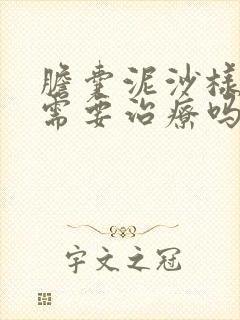 膽囊泥沙樣
需要治療嗎
宇文之冠